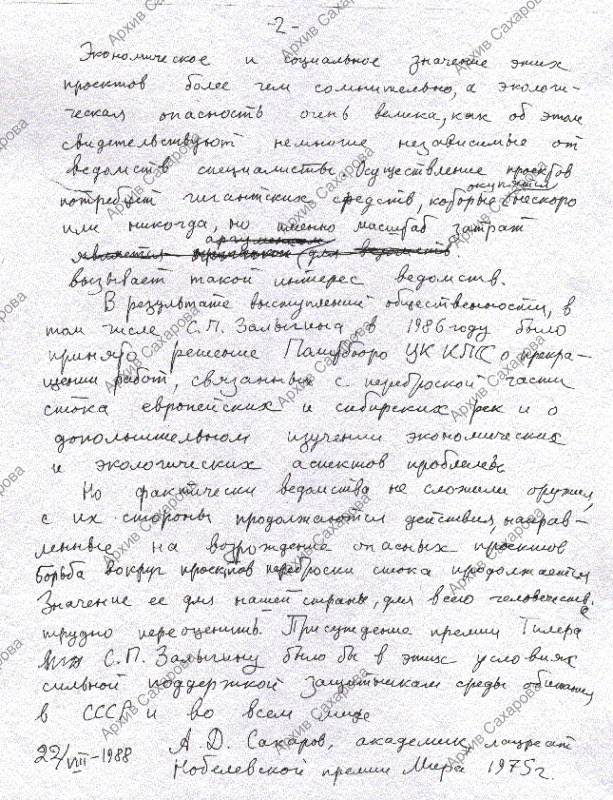 -2-
Экономическое и социальное значение этих
проектов более чем сомнительно, а экологи-
ческая опасность очень велика, как об этом
свидетельствуют немногие независимые от
ведомств специалисты. Осуществление проектов
потребует гигантских средств, которые окупятся нескоро
или никогда, но именно масштаб затрат
является аргументом для ведомств.
вызывает такой интерес ведомств.
В результате выступлений общественности, в
том числе С.П. Залыгина в 1986 году было
принято решение Политбюро ЦК КПСС о прекра-
щении работ, связанных с переброской части
стока европейских и сибирских рек и о
дополнительном изучении экономических
и экологических аспектов проблемы
Но фактически ведомства не сложили оружия,
с их стороны продолжаются действия, направ-
ленные на возрождение опасных проектов
Борьба вокруг проектов переброски стока продолжается
Значение ее для нашей страны, для всего человечества
трудно переоценить. Присуждение премии Тилера
С.П. Залыгину было бы в этих условиях
сильной поддержкой защитникам среды обитания
в СССР и во всем мире
22/VIII-1988 А. Д. Сахаров, академик, лауреат
Нобелевской премии Мира 1975 г.
Архив Сахарова